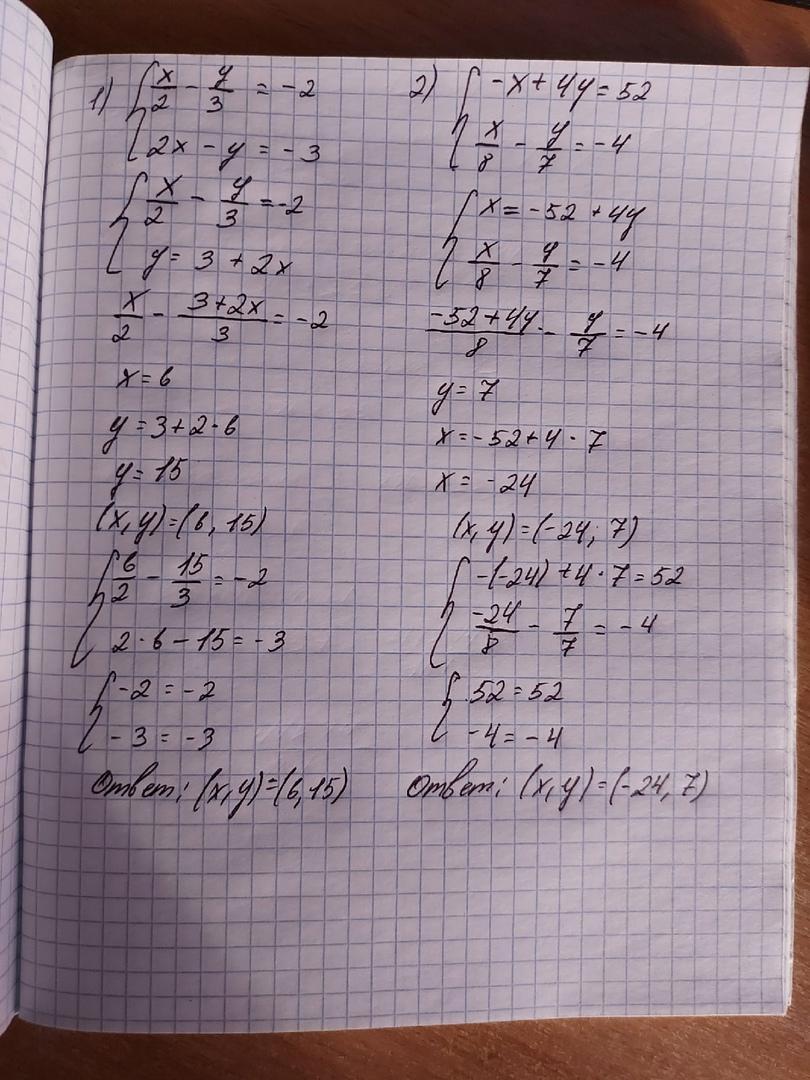 1) { x/2 - y/3 = -2
2x - y = -3
{ x/2 - y/3 = -2
y = 3 + 2x
x/2 - (3+2x)/3 = -2
x = 6
y = 3+2·6
y = 15
(x, y) = (6, 15)
{ 6/2 - 15/3 = -2
2·6 - 15 = -3
{ -2 = -2
-3 = -3
Ответ: (x, y) = (6, 15)
2) { -x + 4y = 52
x/8 - y/7 = -4
{ x = -52 + 4y
x/8 - y/7 = -4
(-52 + 4y)/8 - y/7 = -4
y = 7
x = -52 + 4 · 7
x = -24
(x, y) = (-24; 7)
{ -(-24) + 4·7 = 52
-24/8 - 7/7 = -4
{ 52 = 52
-4 = -4
Ответ: (x, y) = (-24, 7)